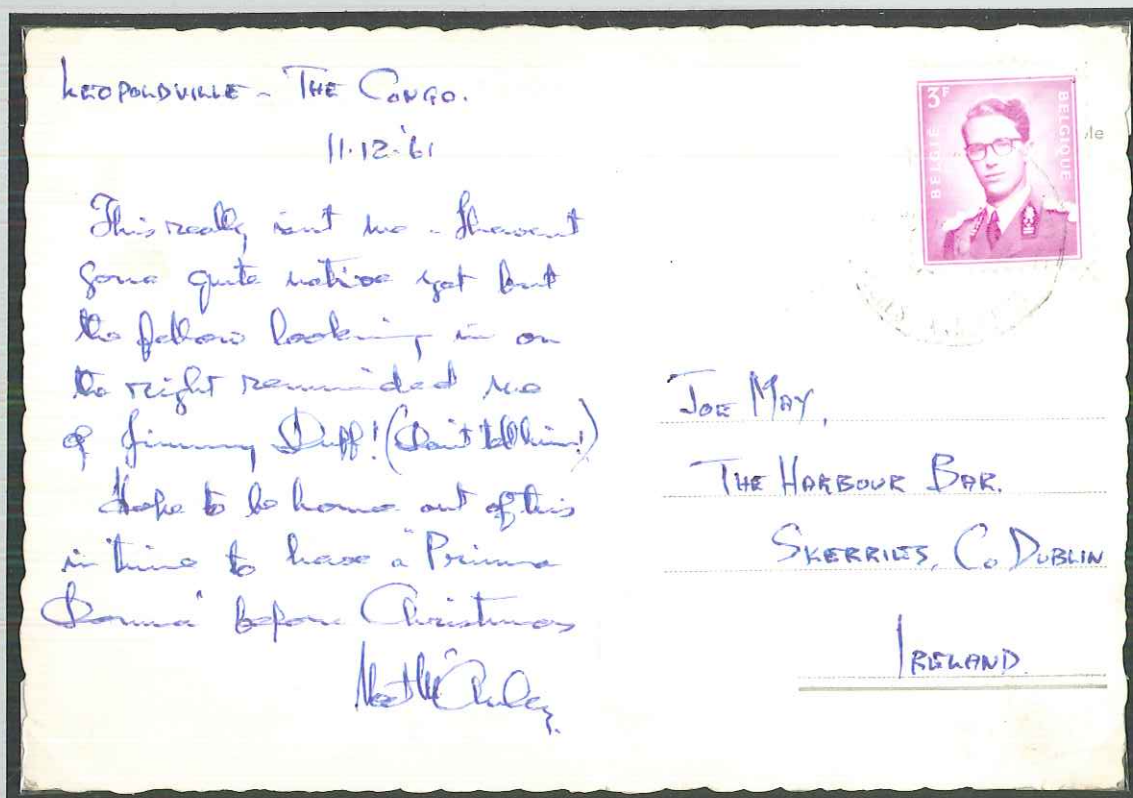 LEOPOLDVILLE - THE CONGO.
11.12.'61
This really isn't me - I haven't
gone quite native yet but
the fellow looking in on
the right reminded me
of Jimmy Duff! (Don't tell him!)
Hope to be home out of this
in time to have a "Prima
Donna" before Christmas
3F
BELGIË
BELGIQUE
JOE MAY,
THE HARBOUR BAR.
SKERRIES, Co DUBLIN
IRELAND.